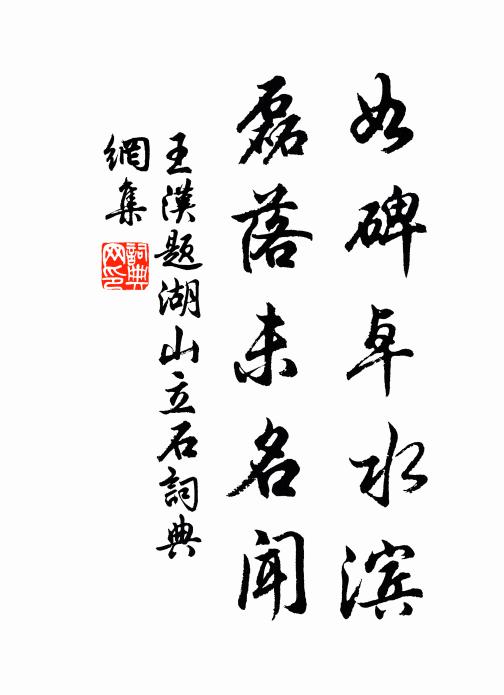 如碑卓水滨
磊落未名闻
王漢题湖山立石詞典
網集
詞典
网印